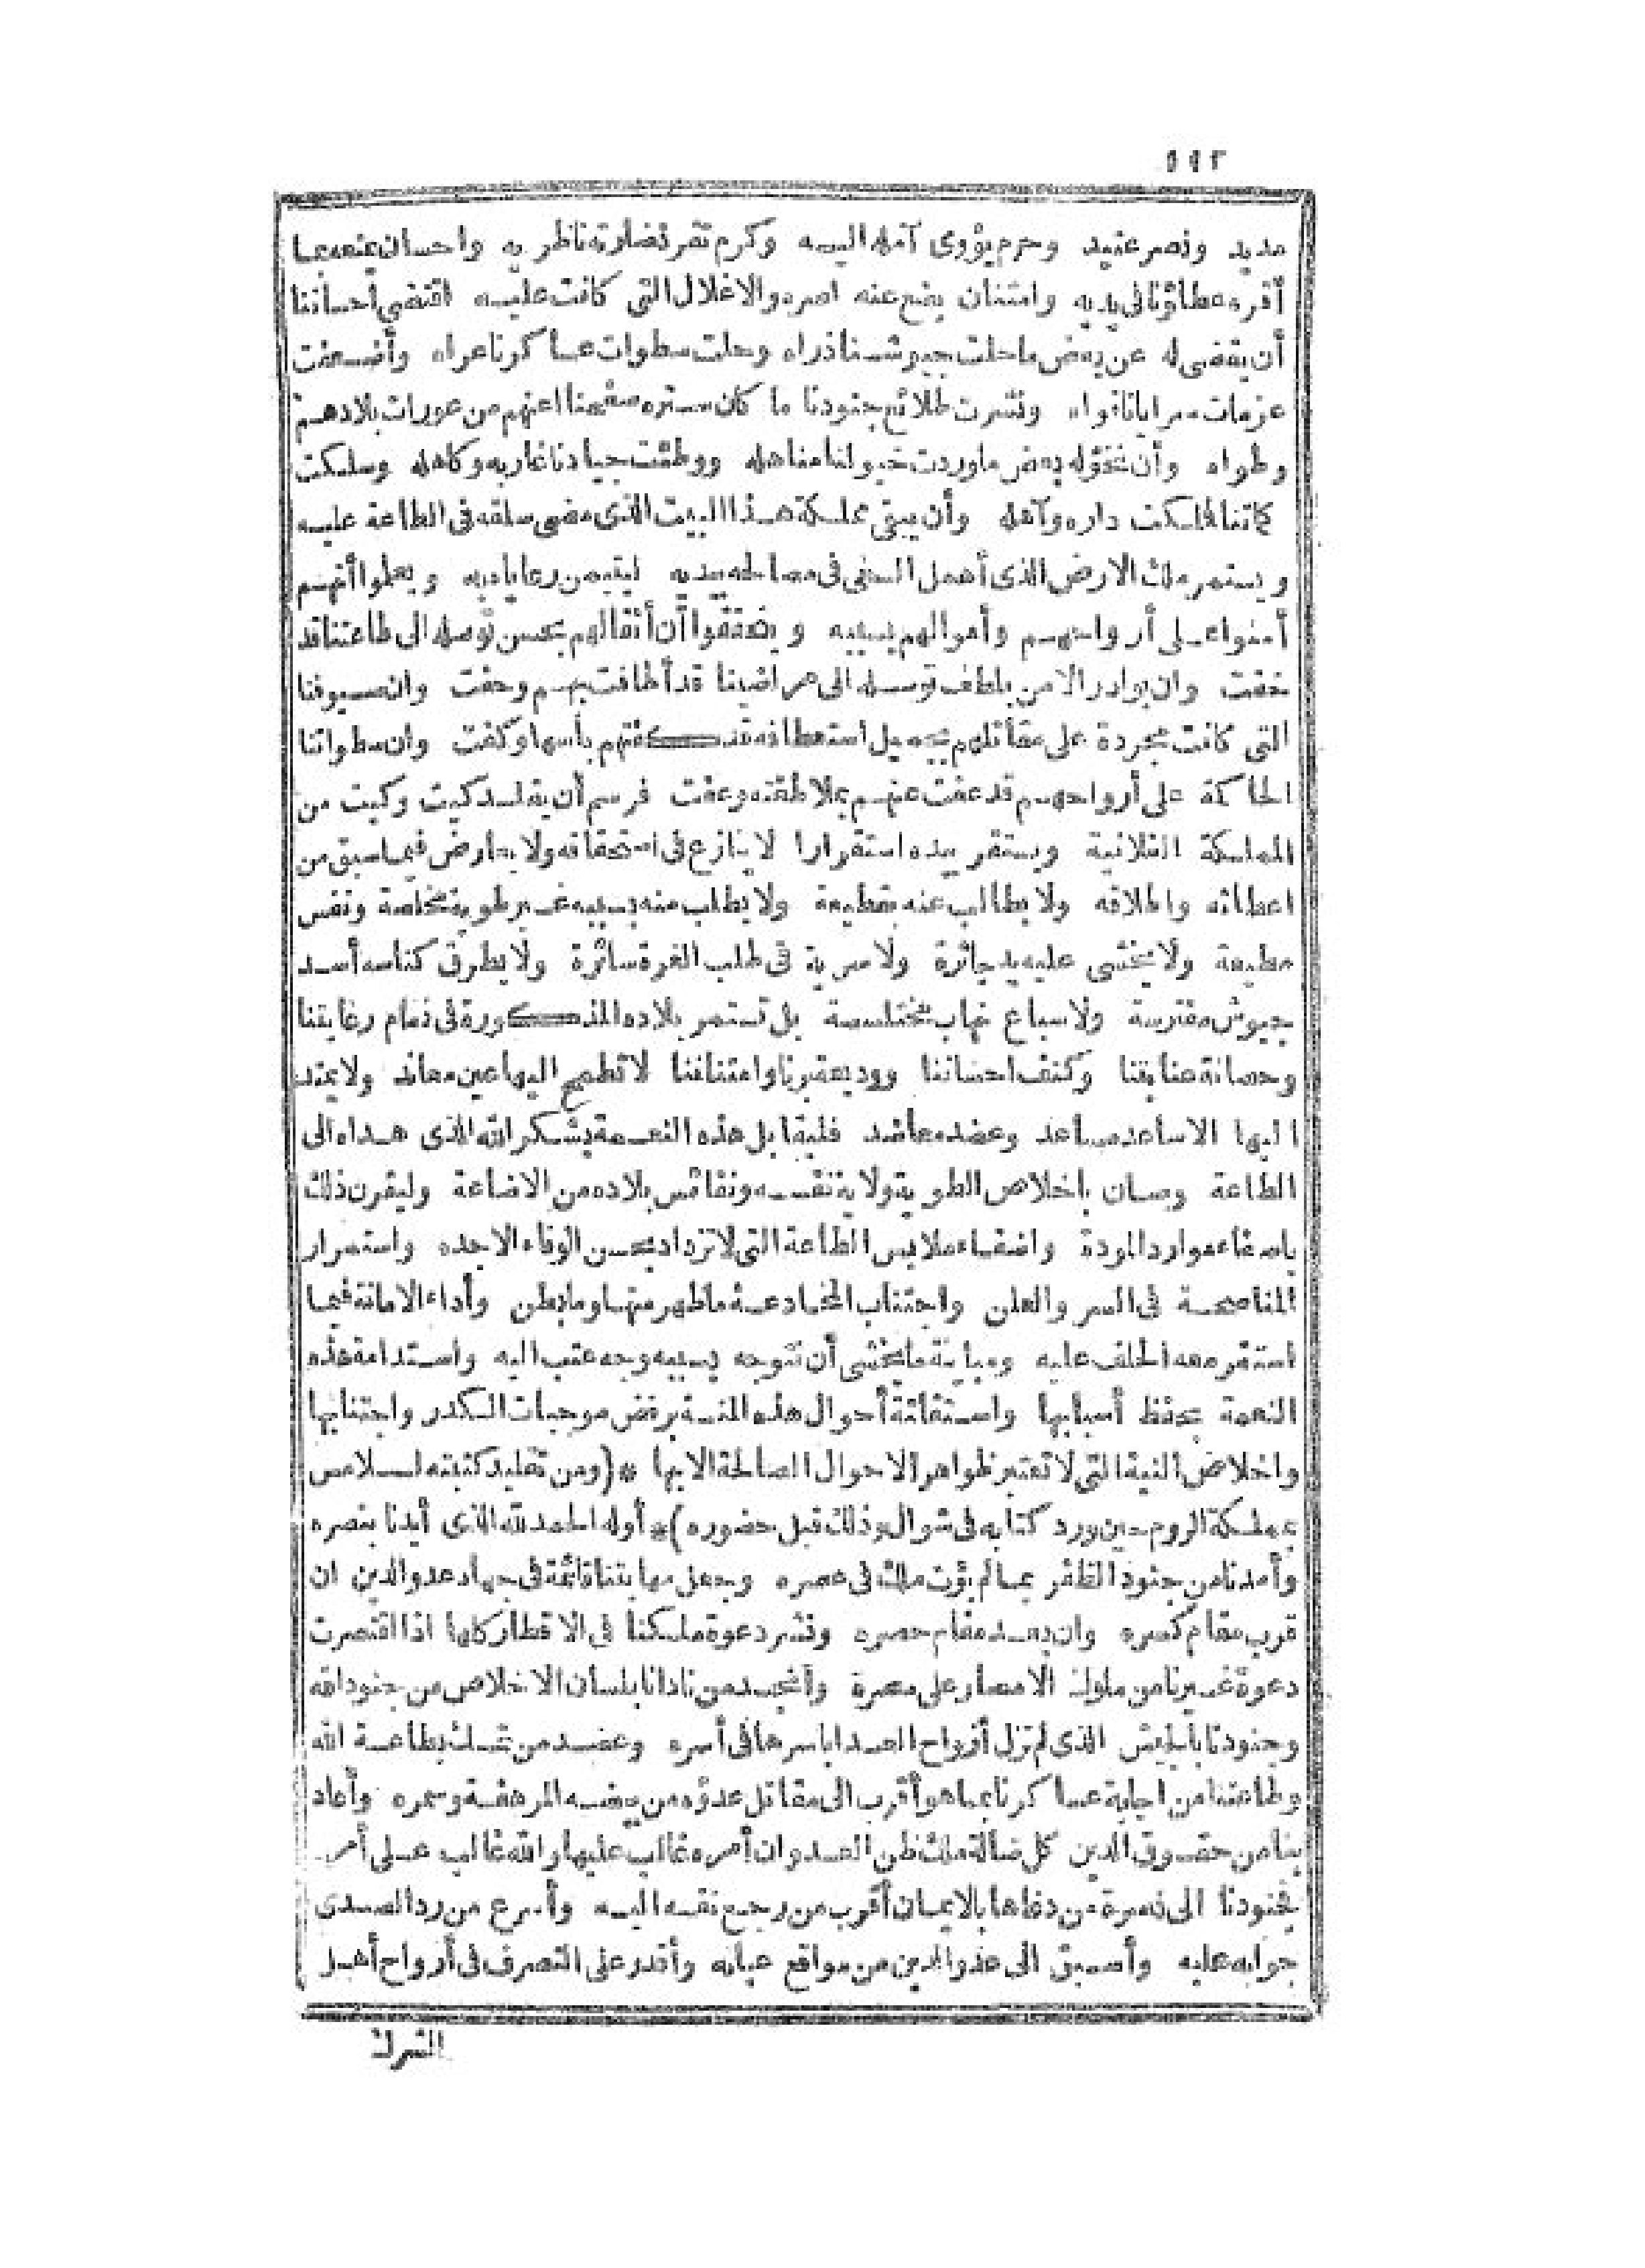 ١١٢
مديد ونصر عتيد وحرم يؤوى آمله اليه وكرم تقر نضارته ناظريه واحسان يمتعه بما
أقره عطاؤنا فى يديه وامتنان يضع عنه اصره والاغلال التى كانت عليه اقتضى احساننا
أن يغضى له عن بعض ما حلت جيوشنا ذراه وحلت سطوات عساكرنا عراه وأضعفت
عزمات سرايانا قواه ونشرت طلائع جنودنا ما كان ستره صفحنا عنهم من عورات بلادهم
وطواه وأن نخوله بعض ما وردت خيولنا مناهله ووطئت جيادنا غاربه وكاهله وسلكت
كماتنا فملكت داره وآهله وأن يبقى مملكة هذا البيت الذى مضى سلفه فى الطاعة عليه
ويستمر ملك الارض الذى أهمل السعى فى مصالحه بيديه ليتيمن رعاياه به ويعلموا أنهم
أمنوا على أرواحهم وأموالهم بسببه ويتحققوا أن أثقالهم بحسن توصله الى طاعتنا قد
خفت وان بوادر الامن بلطف توسله الى مراضينا قد أطافت بهم وحفت وان سيوفنا
التى كانت مجردة على مقاتلهم بجميل استعطافه قد كفتهم بأسها وكفت وأن سطواتنا
الحاكمة على أرواحهم قد عفت عنهم بملاطفته وعفت فرسم أن يقلد كيت وكيت من
المملكة الفلانية ويستقر بيده استقرارا لا ينازع فى استحقاقه ولا يعارض فيما سبق من
اعطائه واطلاقه ولا يطالب عنه بقطيعة ولا يطلب منه بسببه غير طوية مخلصة ونفس
مطيعة ولا يخشى عليه يد جائرة ولا سرية فى طلب الغرة سائرة ولا يطرق كناسه أسد
جيوش مفترسة ولا سباع نهاب مختلسة بل تستمر بلاده المذكورة فى ذمام رعايتنا
وحصانة عنايتنا وكنف احساننا ووديعة برنا وامتناننا لا تطمح اليها عين معاند ولا يمتد
اليها الا ساعد مساعد وعضد معاضد فليقابل هذه النعمة بشكر الله الذى هداه الى
الطاعة وصان باخلاص الطوية ولاية نفسه ونفائس بلاده من الاضاعة وليقرن ذلك
باصفاء موارد المودة واضفاء ملابس الطاعة التى لا تزداد بحسن الوفاء الا جده واستمرار
المناصحة فى السر والعلن واجتناب المخادعة ما ظهر منها وما بطن وأداء الامانة فيما
استقر معه الحلف عليه ومباينة ما يخشى أن تتوجه بسببه وجه عتب اليه واستدامة هذه
النعمة بحفظ أسبابها واستقامة أحوال هذه المنة برفض موجبات الكدر واجتنابها
واخلاص النية التى لا تعتبر ظواهر الاحوال الصالحة الا بها *(ومن تقليد كتبته لسلامس
بمملكة الروم حين ورد كتابه فى شوال وذلك قبل حضوره)* أوله الحمد لله الذى أيدنا بنصره
وأمدنا من جنود الظفر بما لم يؤت ملك فى عصره وجعل مهابتنا قائمة فى جهاد عدو الدين ان
قرب مقام كسره وان بعد مقام حصره ونشر دعوة ملكنا فى الاقطار كلها اذا اقتصرت
دعوة غيرنا من ملوك الامصار على مصره وأنجد من نادانا بلسان الاخلاص من جنود الله
وجنودنا بالجيش الذى لم تزل أرواح العدا باسرها فى أسره وعضد من تمسك بطاعة الله
وطاعتنا من اجابة عساكرنا بما هو أقرب الى مقاتل عدوه من بيضه المرهفة وسمره وأعاد
بنا من حقوق الدين كل ضالة ملك ظن العدو ان أمره غالب عليها والله غالب على أمره
بجنودنا الى نصرة من دعاها بالايمان أقرب من رجع نفسه اليه وأسرع من رد الصدى
جوابه عليه وأسبق الى عدو الدين من مواقع عيانه وأقدر على التصرف فى أرواح أهل
الشرك